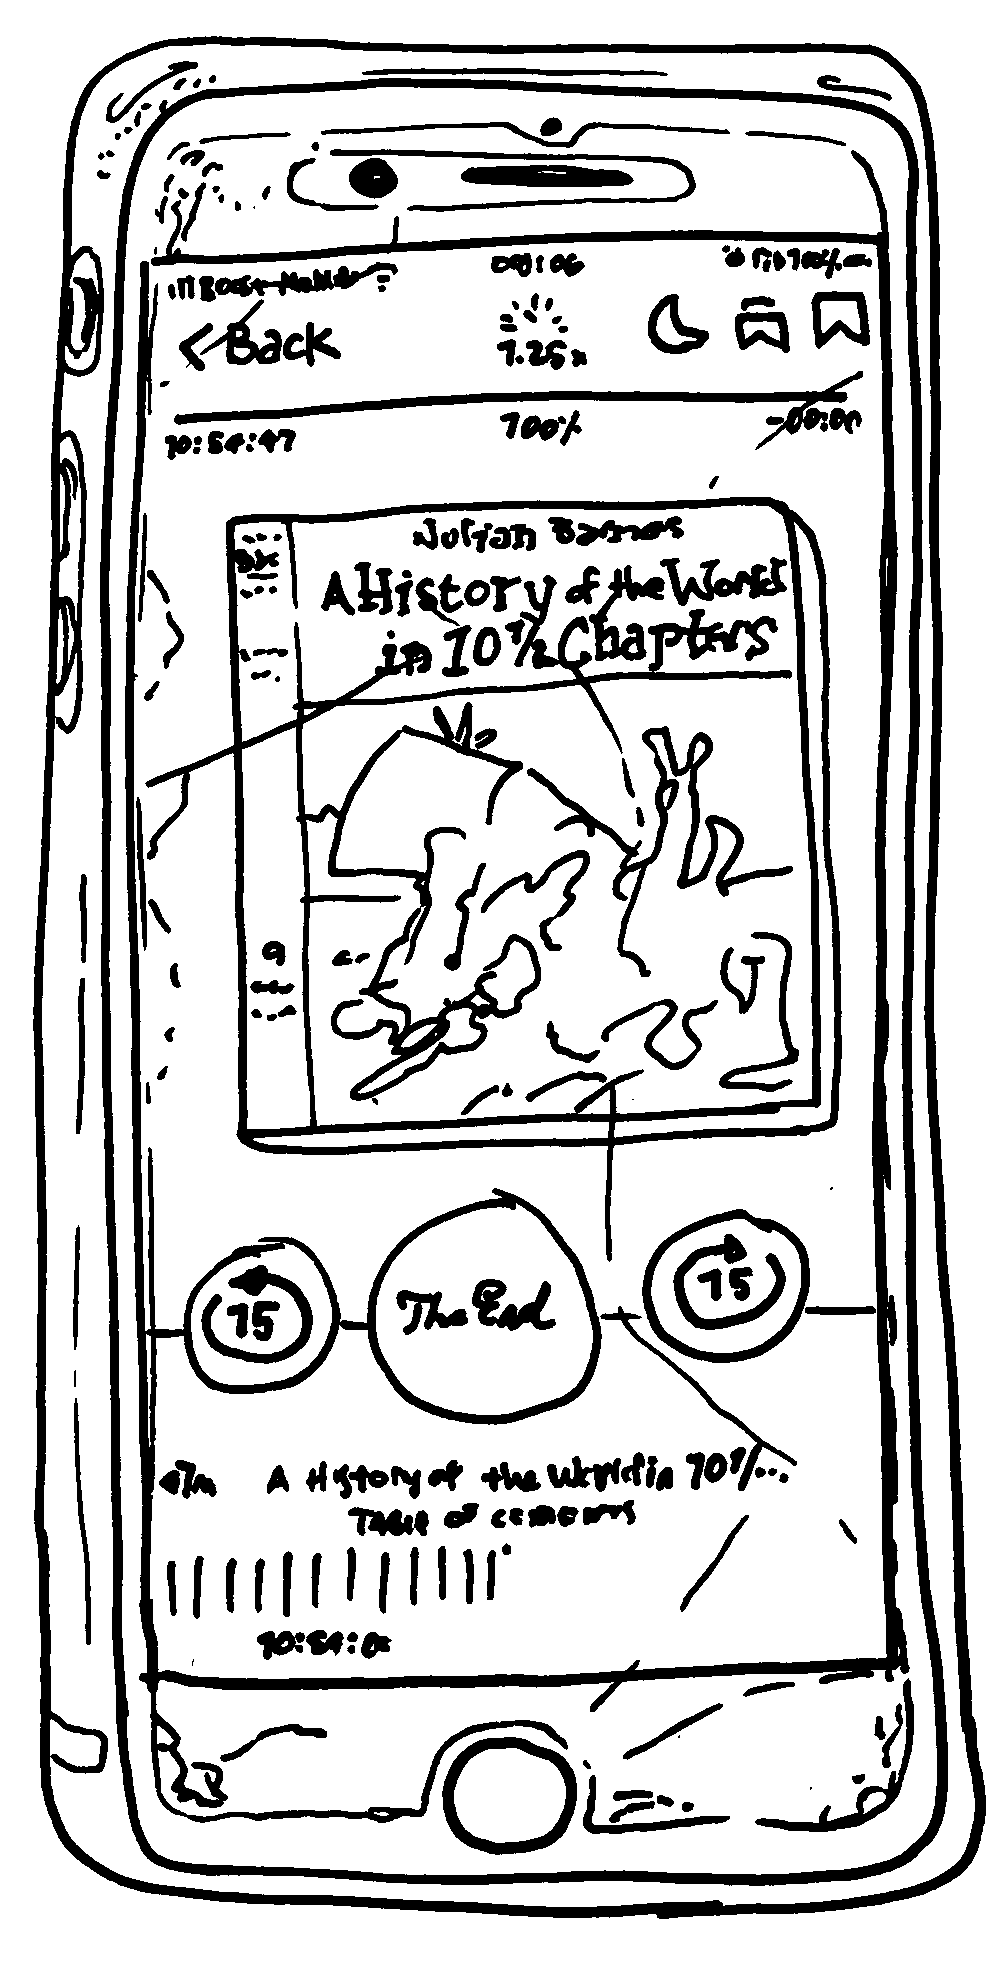 09:06
< Back
1.25x
10:54:47
100%
-00:00
Julian Barnes
A History of the World
in 10½ Chapters
15
The End
15
47m
A History of the World in 10½...
Table of contents